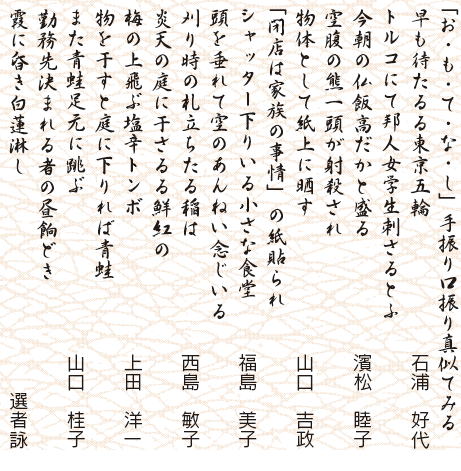 「お・も・て・な・し」手振り口振り真似てみる
早も待たるる東京五輪
石浦 好代
トルコにて邦人女学生刺さるとふ
今朝の仏飯高だかと盛る
濱松 睦子
空腹の熊一頭が射殺され
物体として紙上に晒す
山口 吉政
「閉店は家族の事情」の紙貼られ
シャッター下りいる小さな食堂
福島 美子
頭を垂れて空のあんねい念じいる
刈り時の札立ちたる稲は
西島 敏子
炎天の庭に干さるる鮮紅の
梅の上飛ぶ塩辛トンボ
上田 洋一
物を干すと庭に下りれば青蛙
また青蛙足元に跳ぶ
山口 桂子
勤務先決まれる者の昼餉どき
霞に呑き白蓮淋し
選者詠